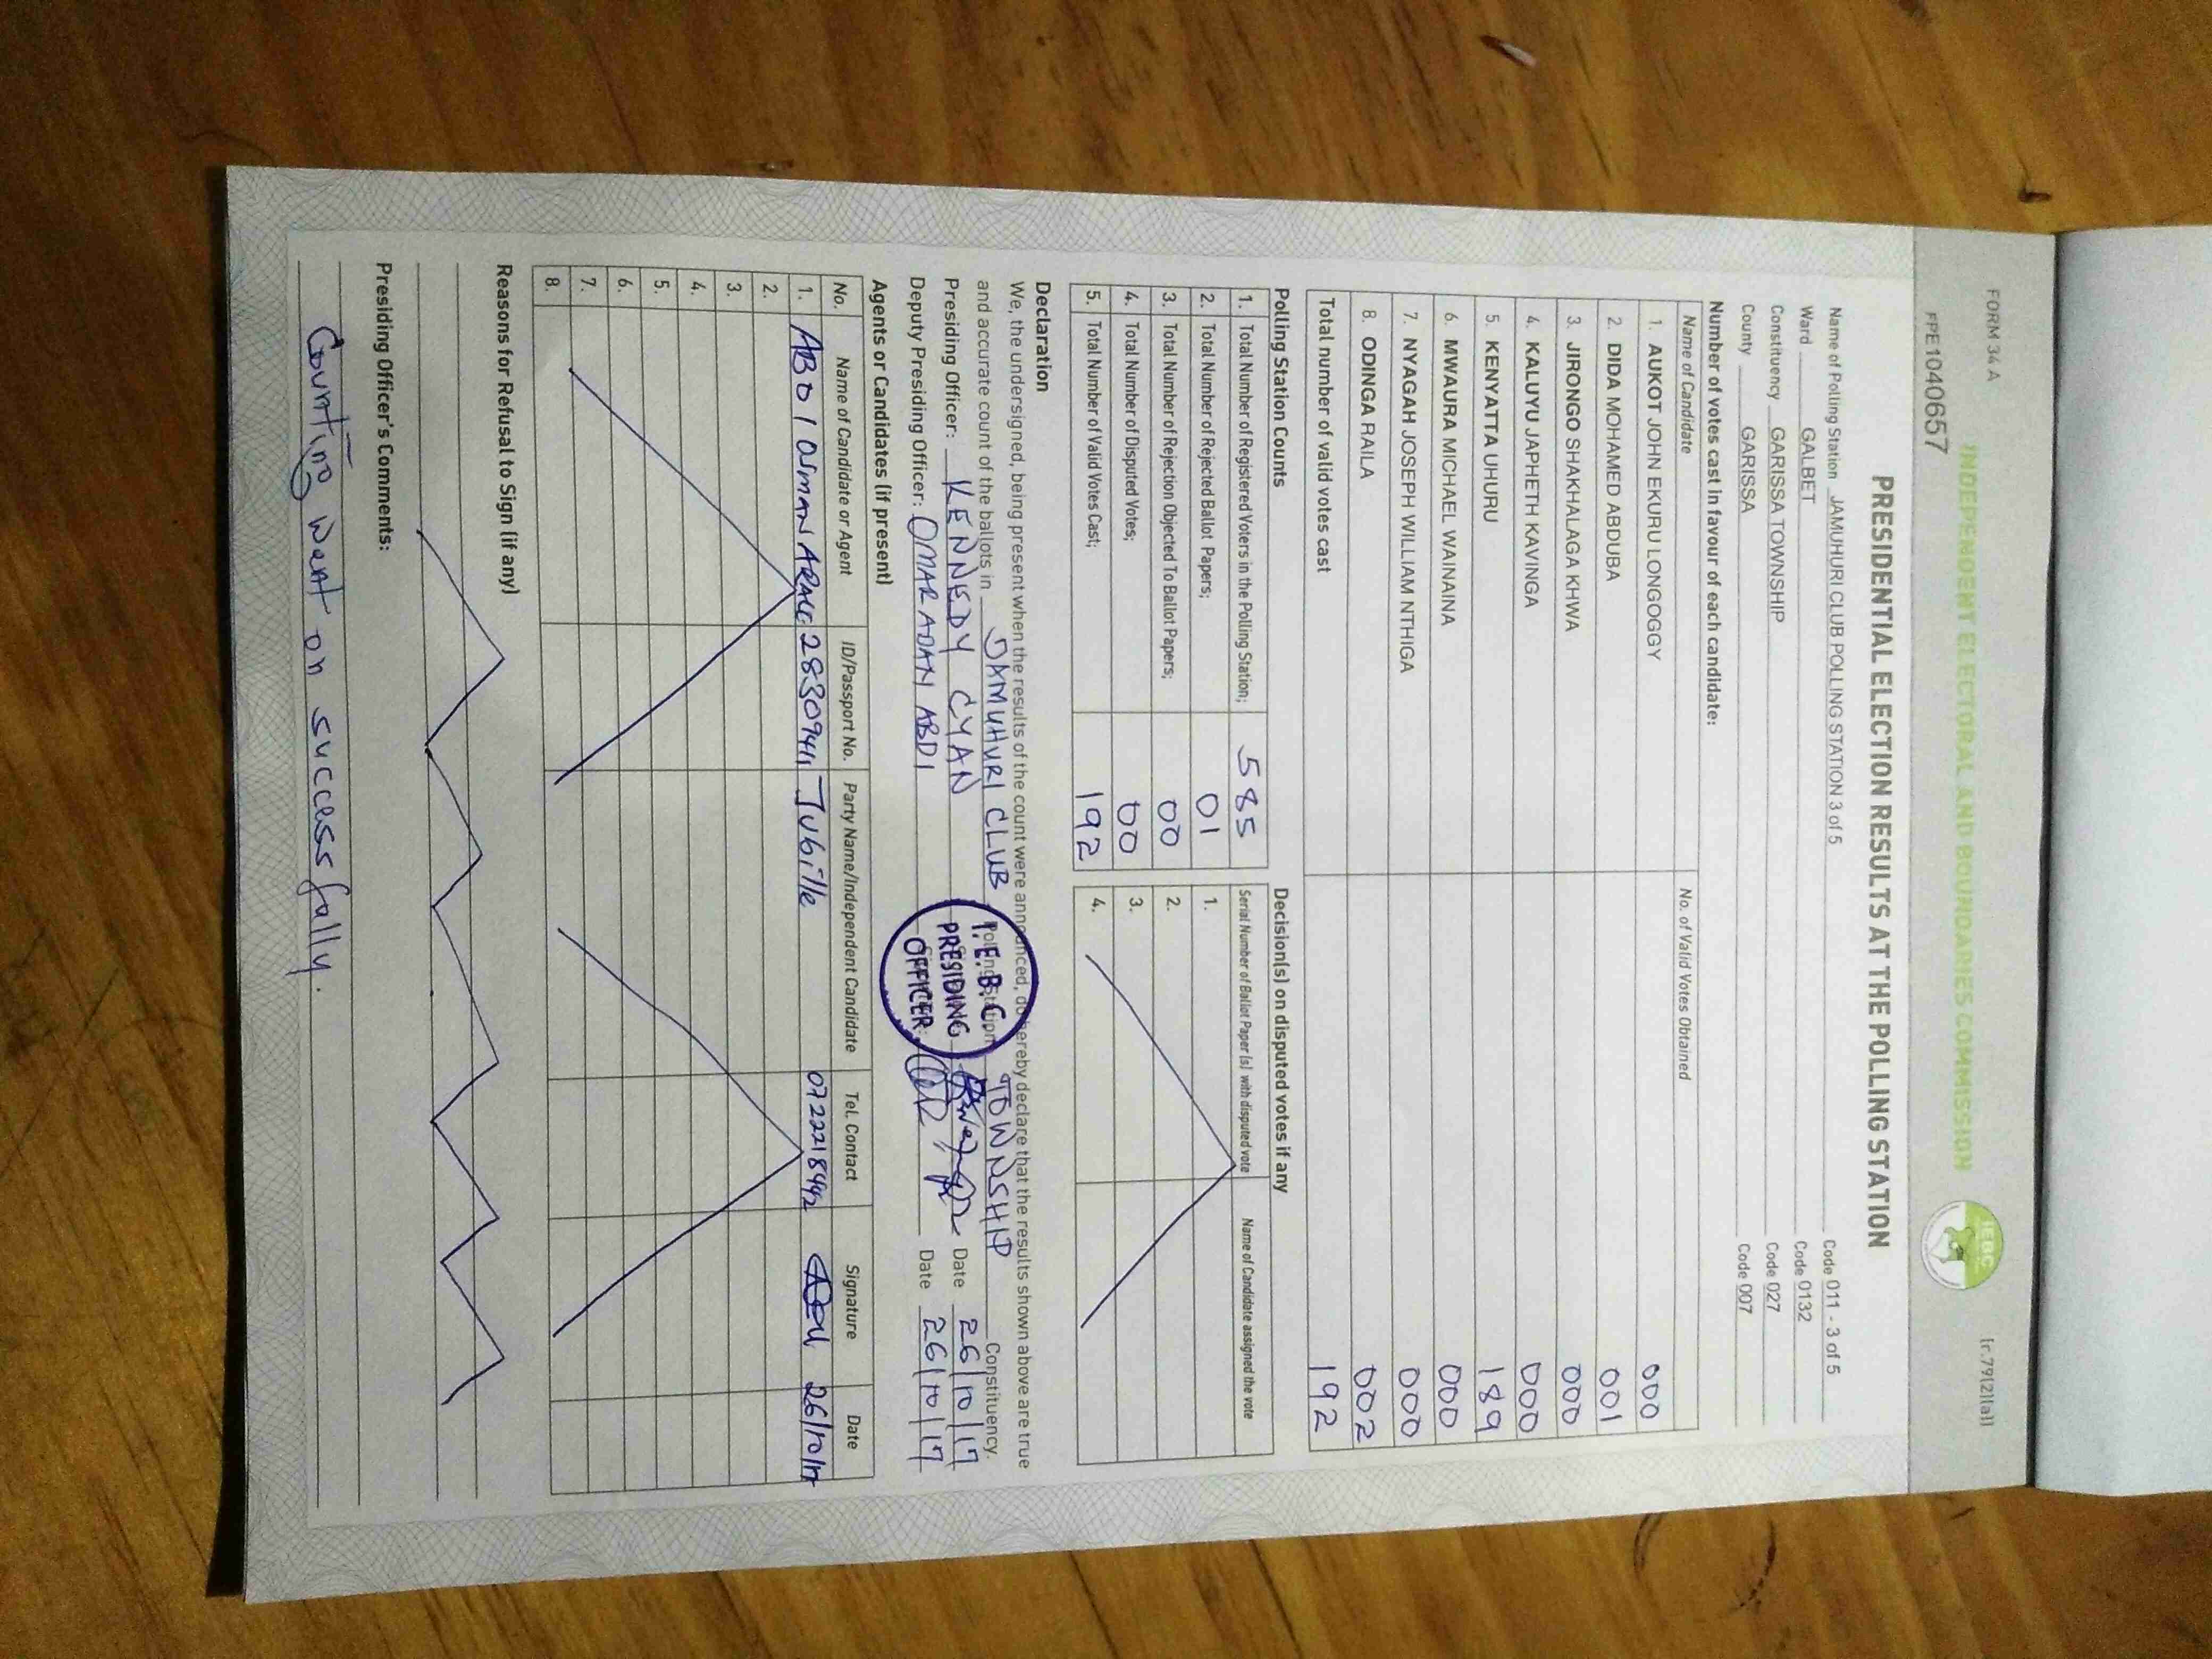 FORM 34 A
[r.79(2)(a)]
FPE1040657
INDEPENDENT ELECTORAL AND BOUNDARIES COMMISSION
IEBC
PRESIDENTIAL ELECTION RESULTS AT THE POLLING STATION
Name of Polling Station JAMUHURI CLUB POLLING STATION 3 of 5 Code 011 - 3 of 5
Ward GALBET Code 0132
Constituency GARISSA TOWNSHIP Code 027
County GARISSA Code 007
Number of votes cast in favour of each candidate:
Name of Candidate No. of Valid Votes Obtained
1. AUKOT JOHN EKURU LONGOGGY 000
2. DIDA MOHAMED ABDUBA 001
3. JIRONGO SHAKHALAGA KHWA 000
4. KALUYU JAPHETH KAVINGA 000
5. KENYATTA UHURU 189
6. MWAURA MICHAEL WAINAINA 000
7. NYAGAH JOSEPH WILLIAM NTHIGA 000
8. ODINGA RAILA 002
Total number of valid votes cast 192
Polling Station Counts
1. Total Number of Registered Voters in the Polling Station; 585
2. Total Number of Rejected Ballot Papers; 01
3. Total Number of Rejection Objected To Ballot Papers; 00
4. Total Number of Disputed Votes; 00
5. Total Number of Valid Votes Cast; 192
Decision(s) on disputed votes if any
Serial Number of Ballot Paper (s) with disputed vote Name of Candidate assigned the vote
1.
2.
3.
4.
Declaration
We, the undersigned, being present when the results of the count were announced, do hereby declare that the results shown above are true
and accurate count of the ballots in JAMUHURI CLUB Polling Station TOWNSHIP Constituency.
Presiding Officer: KENNEDY CYAN Date 26/10/17
Deputy Presiding Officer: OMAR ADAN ABDI Date 26/10/17
I.E.B.C.
PRESIDING
OFFICER
Agents or Candidates (if present)
No. Name of Candidate or Agent ID/Passport No. Party Name/Independent Candidate Tel. Contact Signature Date
1. ABDI OSMAN Jubille 26/10/17
2.
3.
4.
5.
6.
7.
8.
Reasons for Refusal to Sign (if any)
Presiding Officer's Comments:
Counting went on successfully.